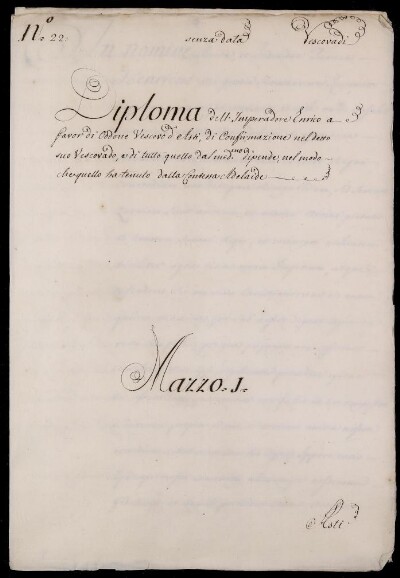 N.º 22. senza data Vescovadi
Diploma dell' Imperadore Enrico a
favor di Oddone Vescovo d'Asti, di Confirmazione nel detto
suo Vescovado, e di tutto quello dal med.mo dipende, nel modo
che quello ha tenuto dalla Contessa Adelaide
Mazzo. 1.
Asti